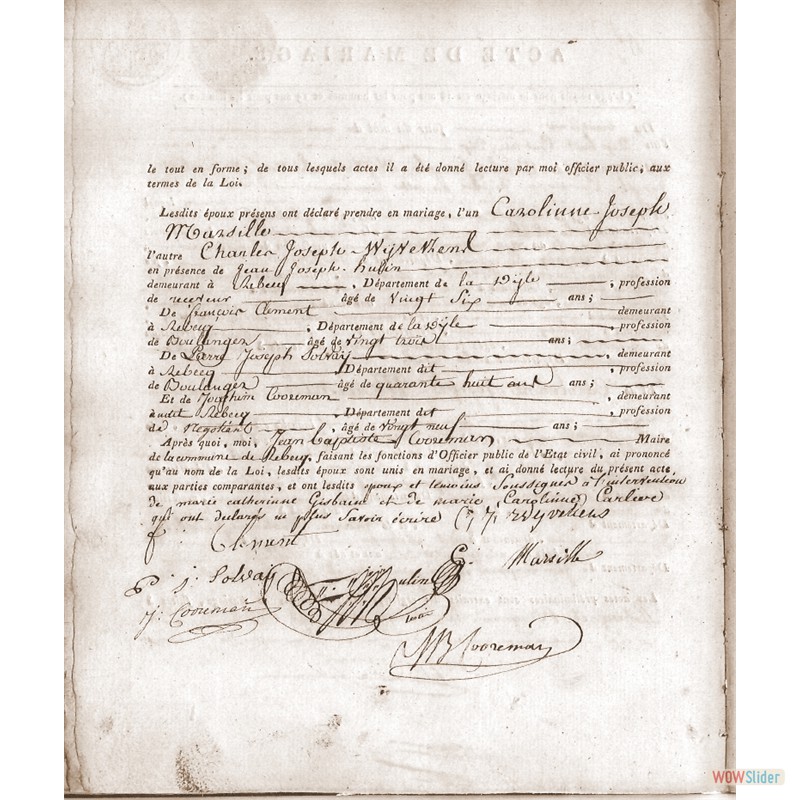 ACTE DE MARIAGE.
le tout en forme ; de tous lesquels actes il a été donné lecture par moi officier public, aux
termes de la Loi.
Lesdits époux présens ont déclaré prendre en mariage, l'un Carolinne Joseph
Marsille
l'autre Charles Joseph Wÿvekens
en présence de Jean Joseph hulin
demeurant à Rebecq , Département de la Dÿle ; profession
de receveur âgé de vingt Six ans ;
De françois Clement demeurant
à Rebecq , Département de la dÿle ; profession
de Boulanger âgé de vingt trois ans ;
De Pierre Joseph Solvaÿ demeurant
à Rebecq , Département dit ; profession
de Boulanger âgé de quarante huit ans ans ;
Et de Joachim Cooreman , demeurant
à udit Rebecq , Département dit ; profession
de Negotient , âgé de vingt neuf ans ;
Après quoi, moi, Jean Baptiste Cooreman Maire
de la commune de Rebecq, faisant les fonctions d'Officier public de l'Etat civil, ai prononcé
qu'au nom de la Loi, lesdits époux sont unis en mariage, et ai donné lecture du présent acte
aux parties comparantes, et ont lesdits epoux et temoins Soussignés à l'intervention
de marie catherinne Gisbain et de marie Carolinne Carliere
qui ont declarés ne plus Savoir écrire C J Wyvekens
Clement
Marsille
j: Solvaÿ
hulin
J: Cooreman
JB Cooreman
WOWSlider